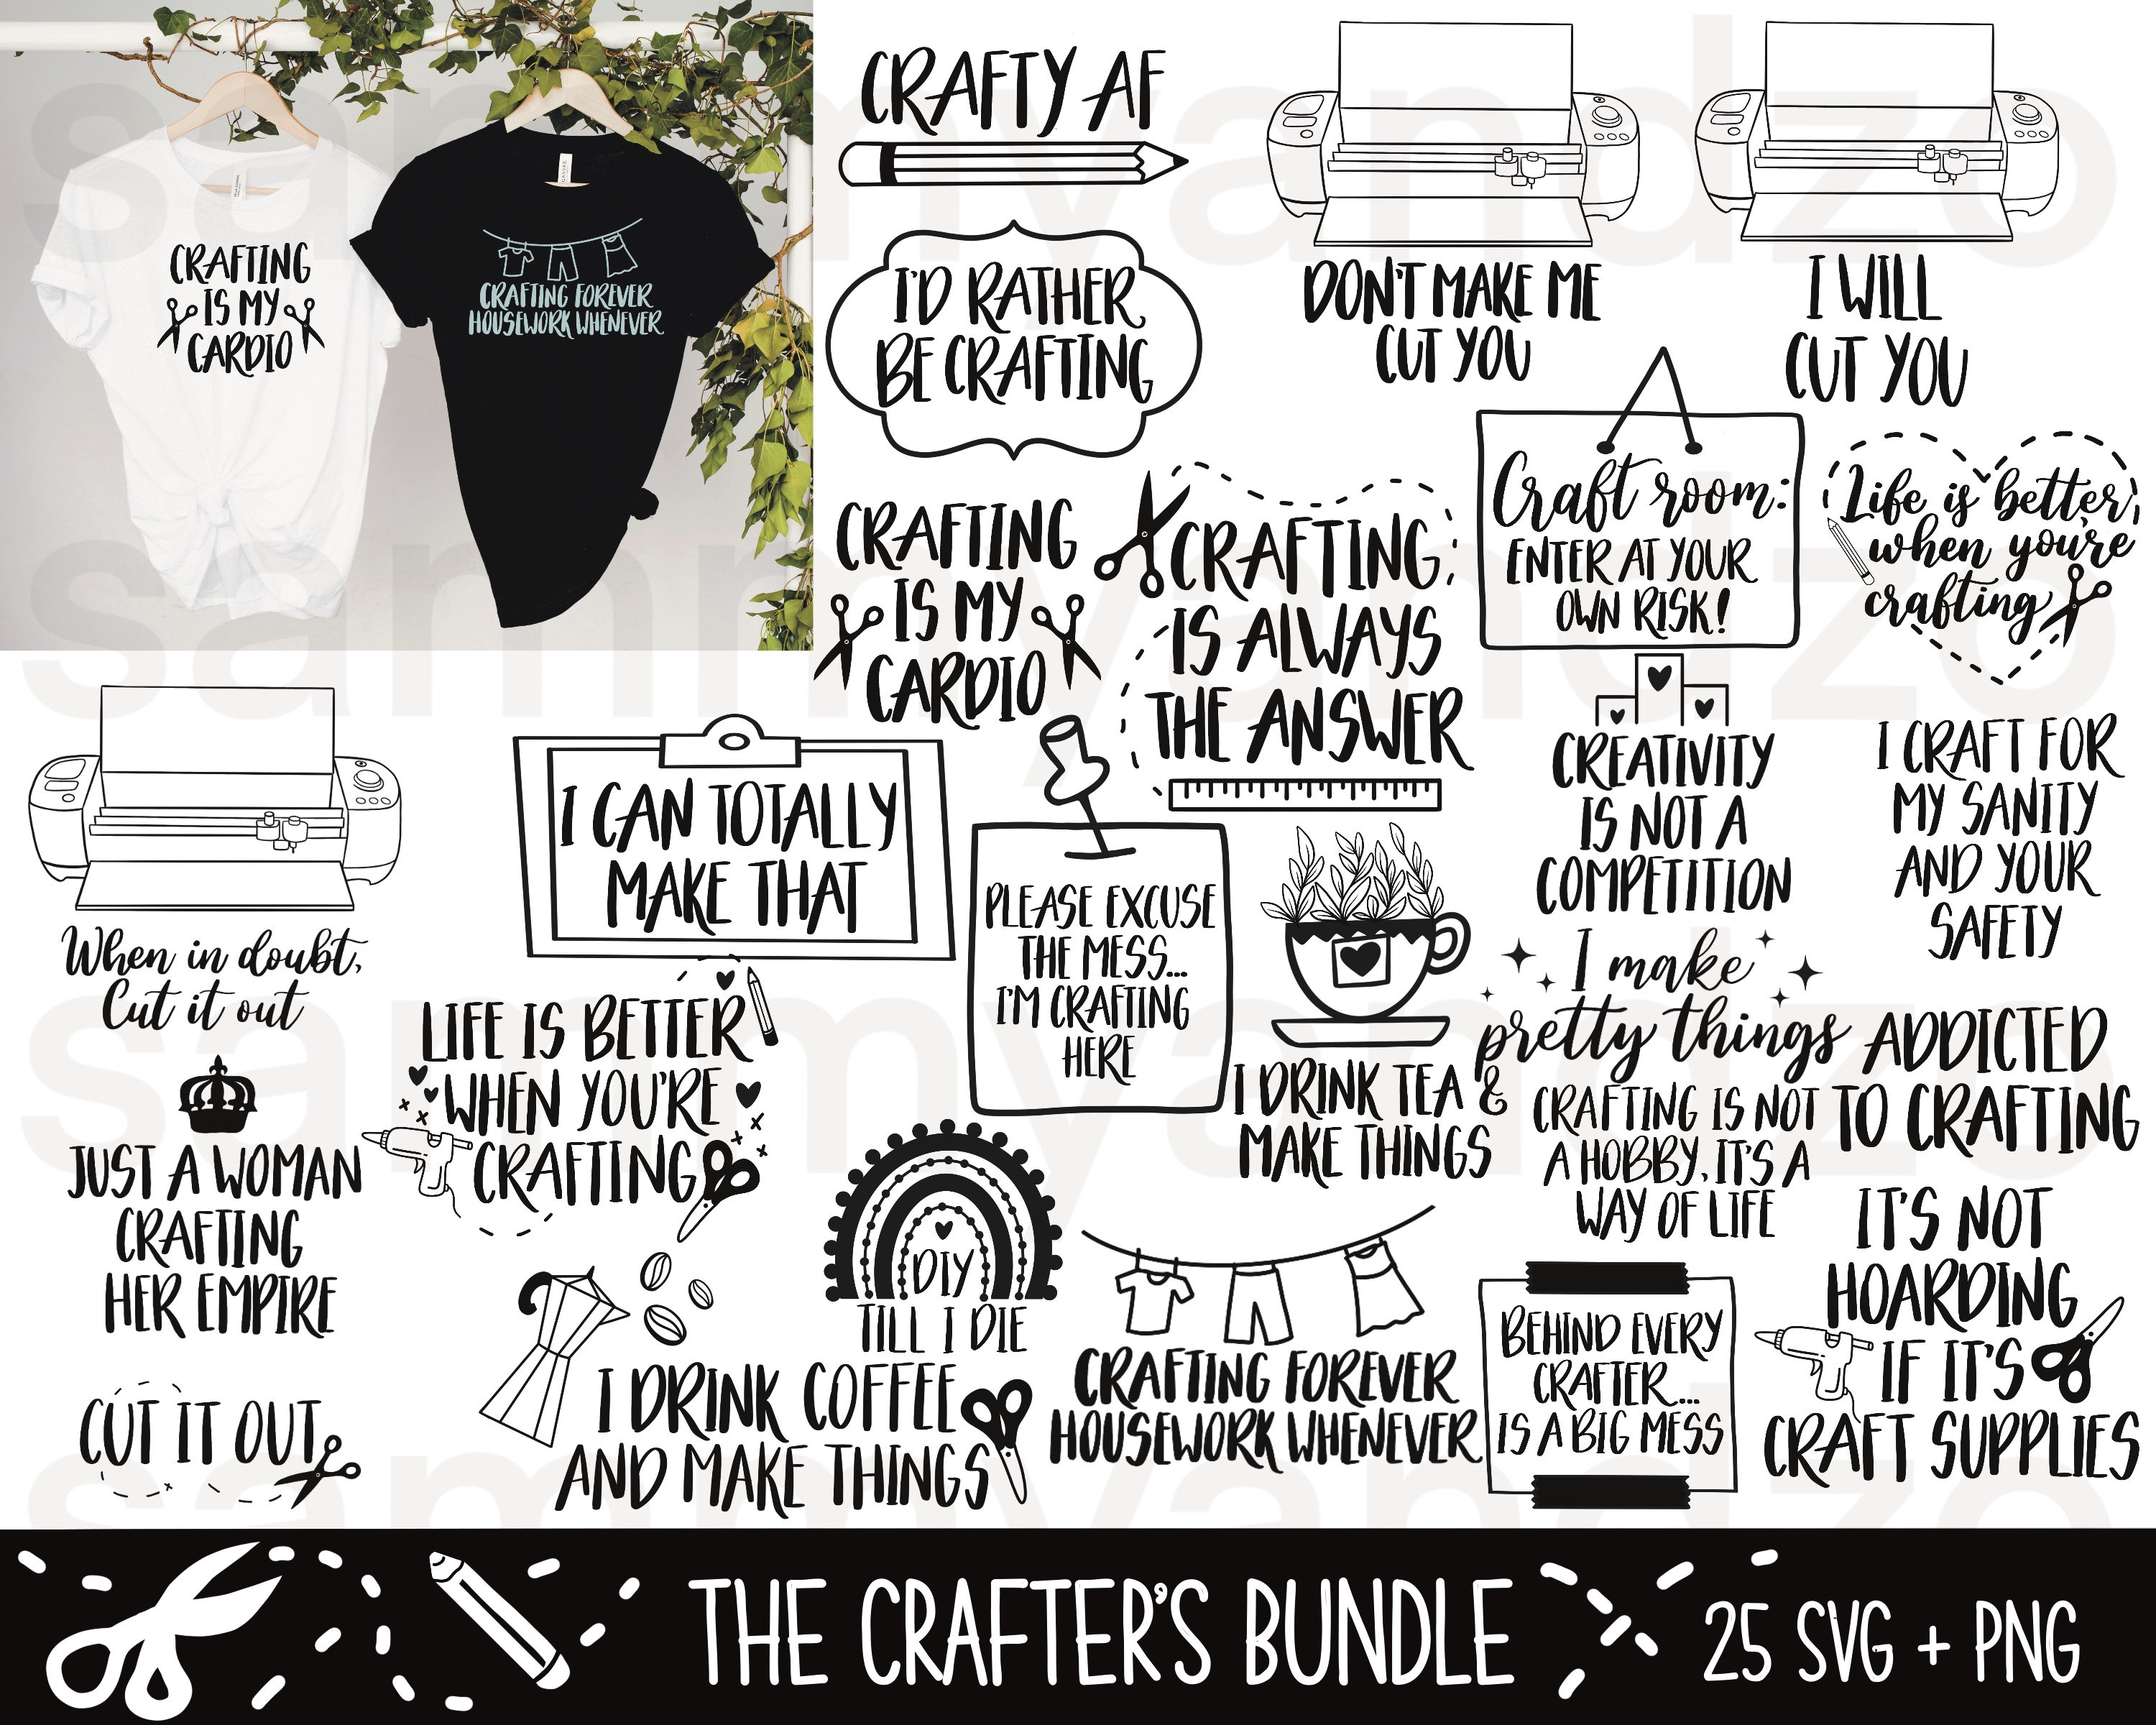 CRAFTING
IS MY
CARDIO
CRAFTING FOREVER
HOUSEWORK WHENEVER
CRAFTY AF
I'D RATHER
BE CRAFTING
DON'T MAKE ME
CUT YOU
I WILL
CUT YOU
CRAFTING
IS MY
CARDIO
CRAFTING
IS ALWAYS
THE ANSWER
Craft room:
ENTER AT YOUR
OWN RISK!
Life is better
when you're
crafting
When in doubt,
Cut it out
I CAN TOTALLY
MAKE THAT
PLEASE EXCUSE
THE MESS...
I'M CRAFTING
HERE
CREATIVITY
IS NOT A
COMPETITION
I CRAFT FOR
MY SANITY
AND YOUR
SAFETY
I make
pretty things
LIFE IS BETTER
WHEN YOU'RE
CRAFTING
I DRINK TEA &
MAKE THINGS
CRAFTING IS NOT
A HOBBY, IT'S A
WAY OF LIFE
ADDICTED
TO CRAFTING
JUST A WOMAN
CRAFTING
HER EMPIRE
DIY
TILL I DIE
CUT IT OUT
I DRINK COFFEE
AND MAKE THINGS
CRAFTING FOREVER
HOUSEWORK WHENEVER
BEHIND EVERY
CRAFTER...
IS A BIG MESS
IT'S NOT
HOARDING
IF IT'S
CRAFT SUPPLIES
THE CRAFTER'S BUNDLE
25 SVG + PNG
sammyandzo
sammyandzo
sammyandzo
sammyandzo